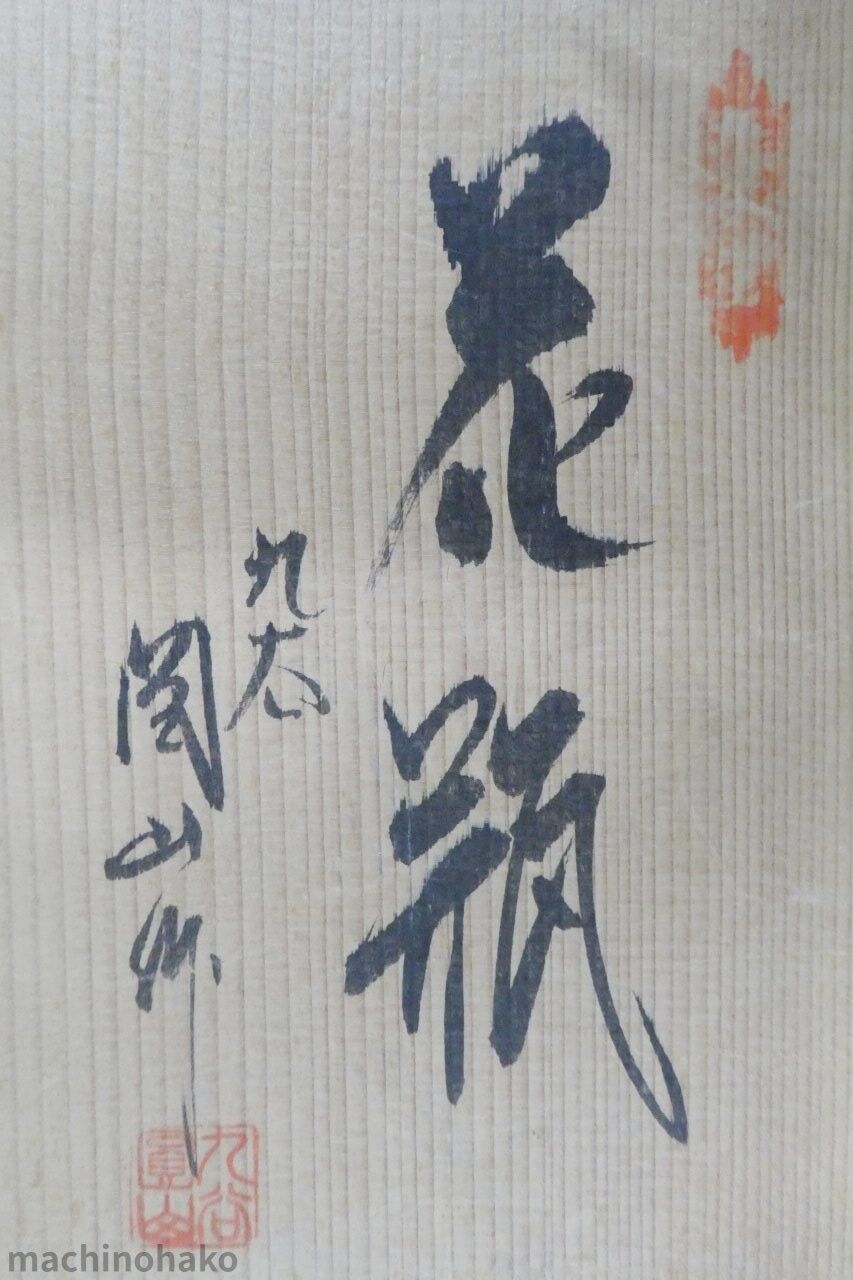 花瓶
九谷
山作
九谷
山
machinohako